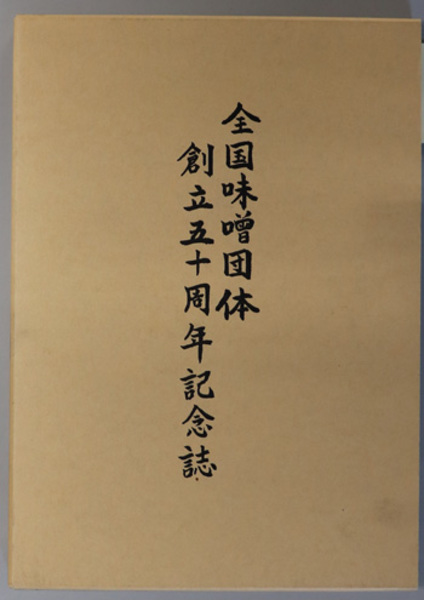 全国味噌団体
創立五十周年記念誌